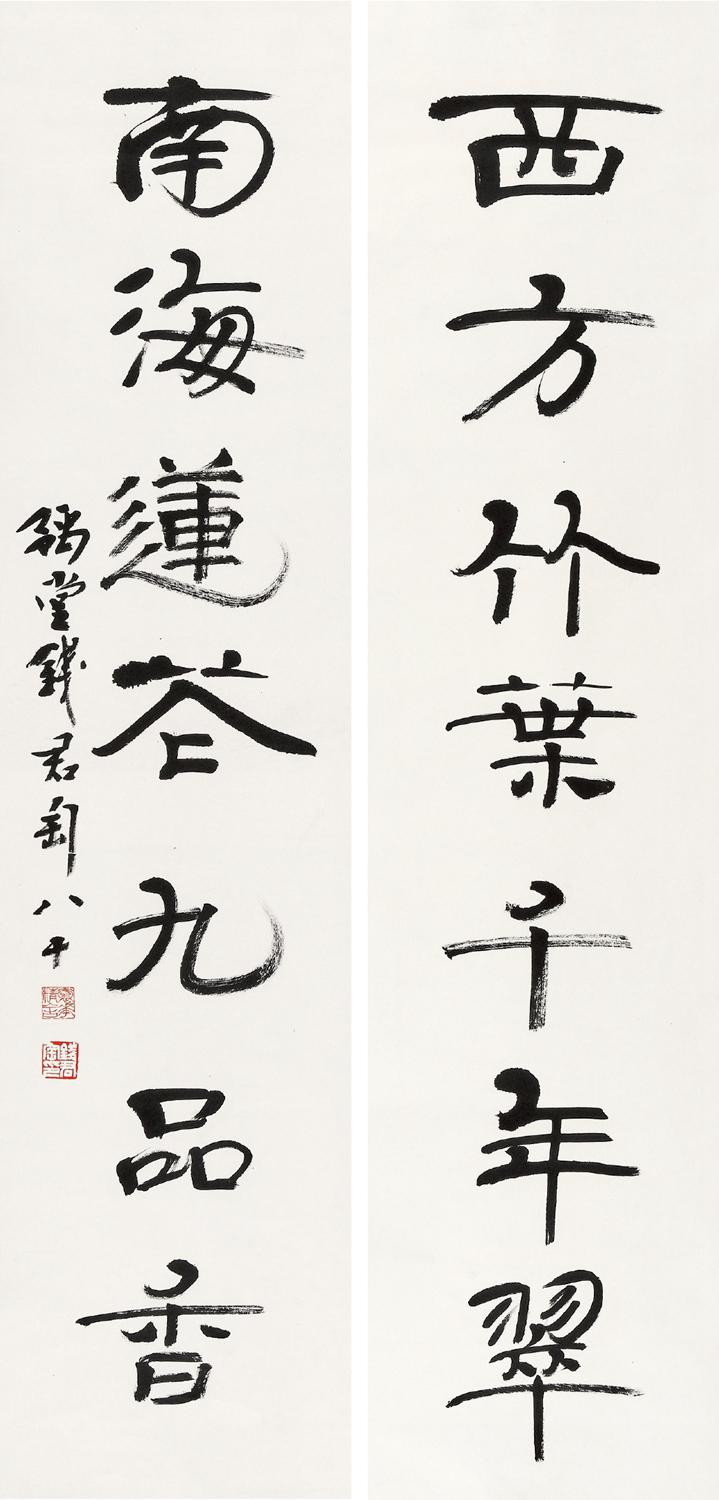 西方竹葉千年翠
南海蓮花九品香
豫堂錢君匋八十